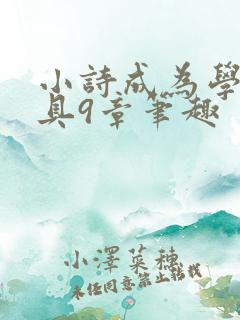 小詩成為學
具9章筆趣
小澤菜穗
未經同意禁止轉載